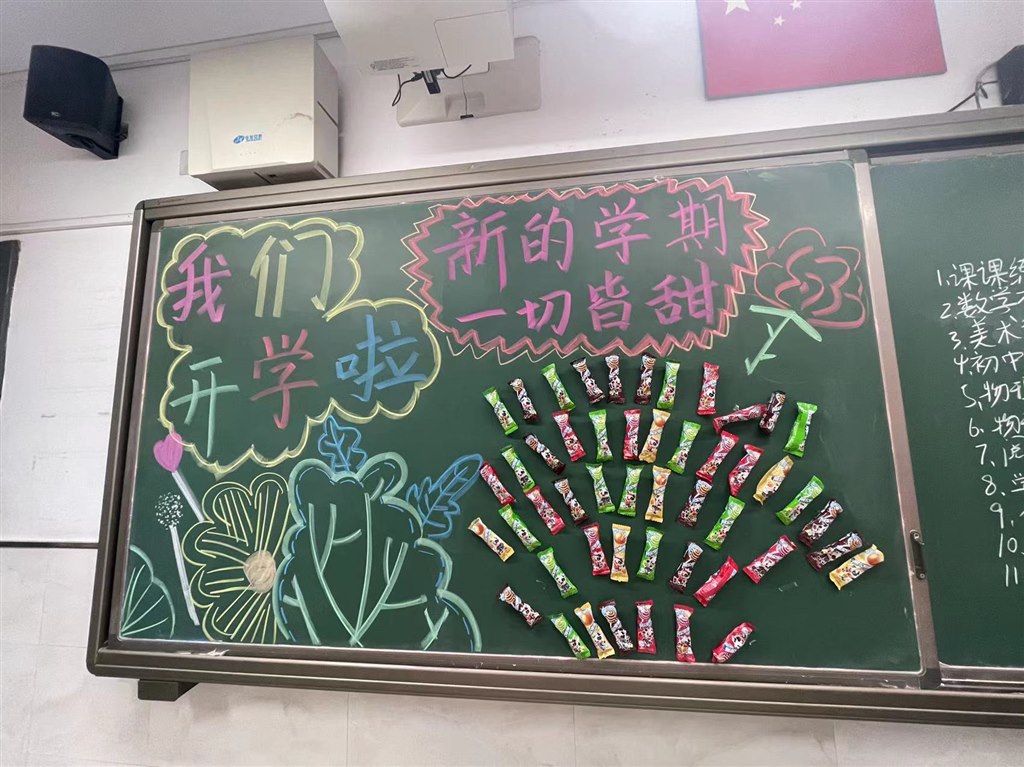 我们
开学啦
新的学期
一切皆甜
1.课课练
2.数学
3.美术
4.初中
5.物理
6.物
7.
8.学
9.
10.
11